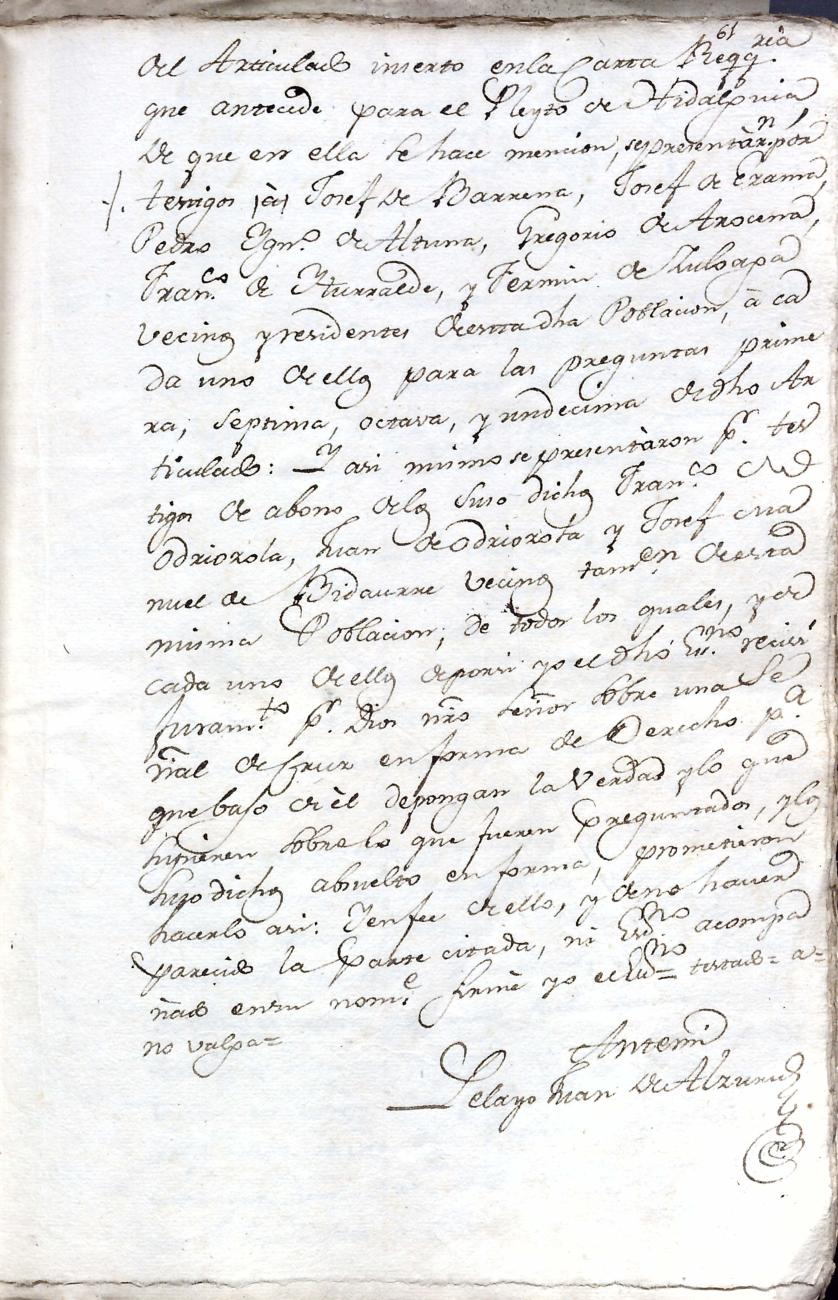 61
del Articulado inserto en la Carta Reqq.ria
que antecede para el Pleyto de Hidalguia
de que en ella se hace mencion, se presentàr.n por
testigos |à| Josef de Barrena, Josef de Erama,
Pedro Ygn.o de Altuna, Gregorio de Arocena,
Fran.co de Yturralde, y Fermin de
vecinos y residentes de esta dha Poblacion, à ca
da uno de ellos para las preguntas prime
ra, septima, octava, y undecima de dho Ar
ticulado: Y asi mismo se presentàron p.r tes
tigos de abono de los suso dichos Fran.co de
Odriozola, Juan de Odriozola y Josef Ma
nuel de Bidaurre vecinos tam.en de esta
misma Poblacion, de todos los quales, y de
cada uno de ellos de por si yo el dho Es.no reciví
Juram.to p.r Dios nrõ Señor sobre una Se
ñal de Cruz en forma de Derecho p.a
que bajo de èl depongan la Verdad y lo que
supieren sobre lo que fueren preguntados, y los
suso dichos absuelto en forma, prometieron
hacerlo asi: Y en fee de ello, y de no haver
parecido la Parte citada, ni Es.no acompa
ñado en su nom.e firmè yo el Es.no= testado= a=
no valga=
Antemi
Pelayo Juan de Alzuru